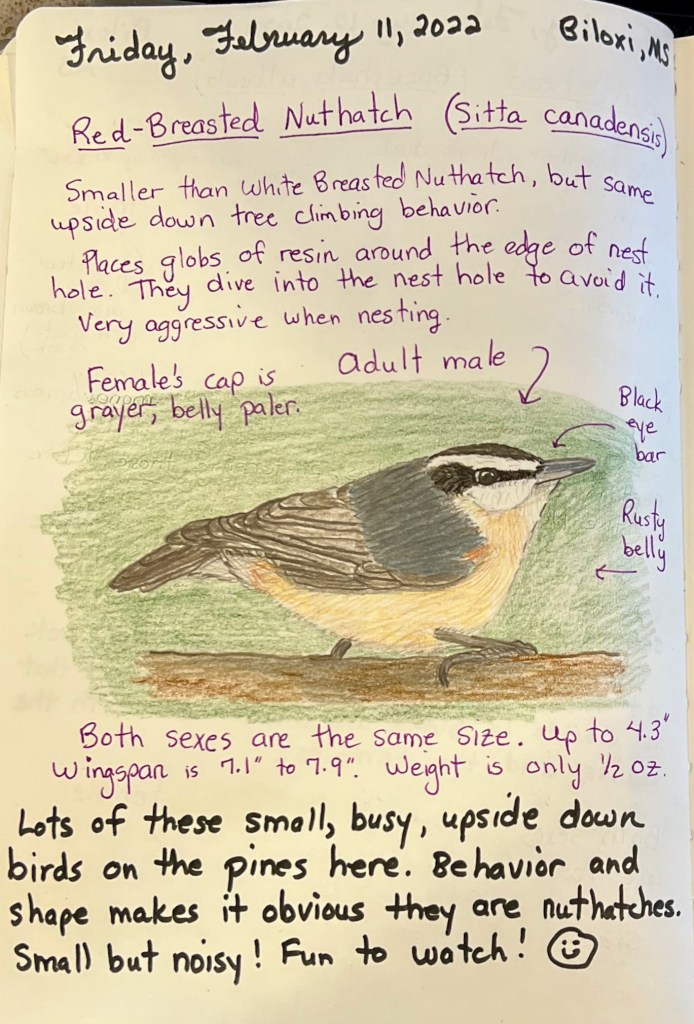 Friday, February 11, 2022 Biloxi, MS
Red-Breasted Nuthatch (Sitta canadensis)
Smaller than White Breasted Nuthatch, but same
upside down tree climbing behavior.
Places globs of resin around the edge of nest
hole. They dive into the nest hole to avoid it.
Very aggressive when nesting.
Female's cap is
grayer, belly paler.
adult male
Black
eye
bar
Rusty
belly
Both sexes are the same size. Up to 4.3"
Wingspan is 7.1" to 7.9". Weight is only 1/2 oz.
Lots of these small, busy, upside down
birds on the pines here. Behavior and
shape makes it obvious they are nuthatches.
Small but noisy! Fun to watch! ☺